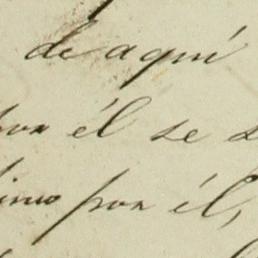 de aquí
por él se
por él,